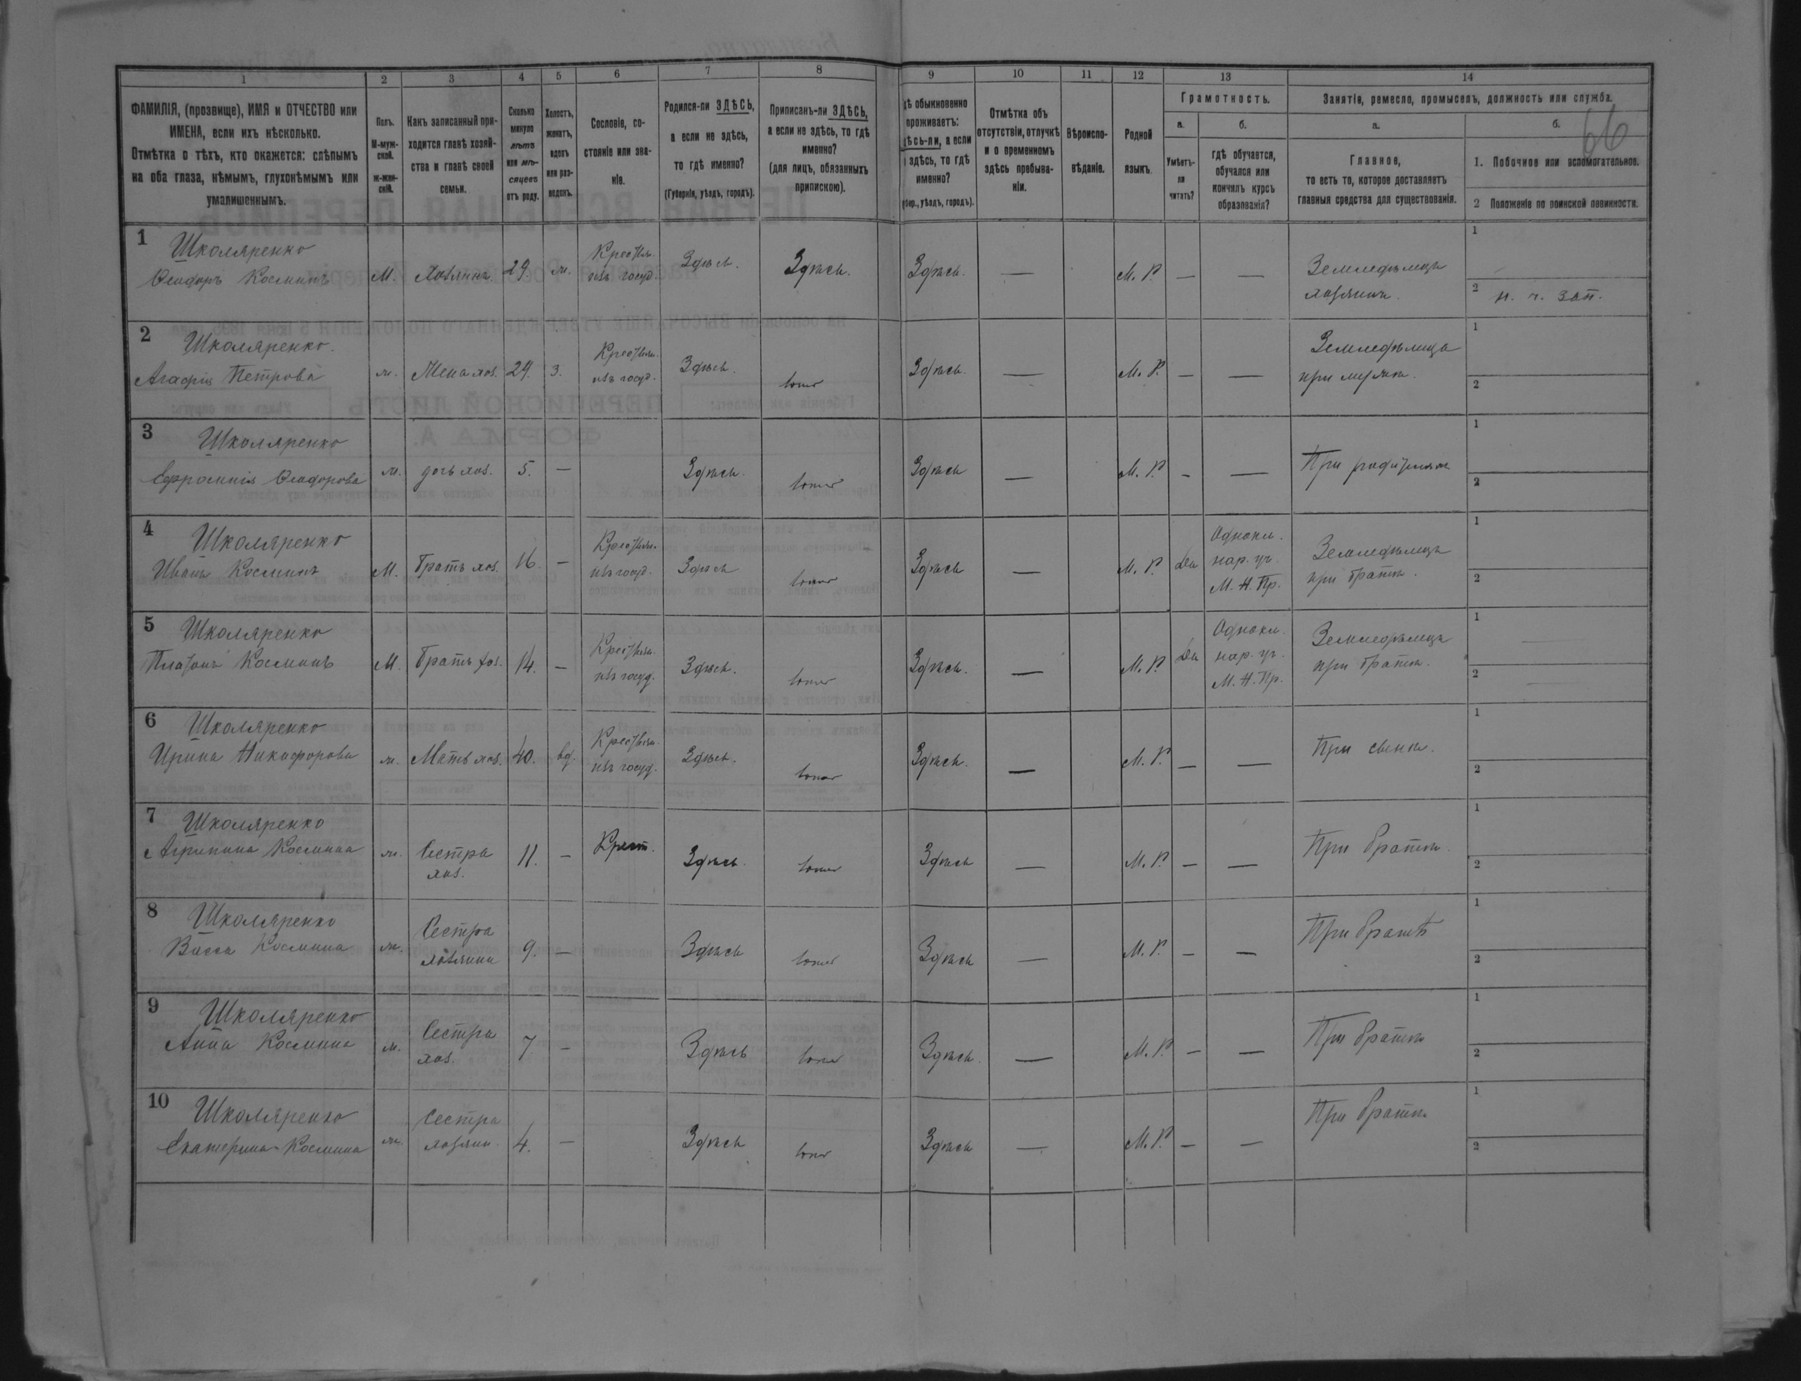 66
1 2 3 4 5 6 7 8 9 10 11 12 13 14
ФАМИЛІЯ, (прозвище), ИМЯ и ОТЧЕСТВО или
ИМЕНА, если ихъ нѣсколько.
Отмѣтка о тѣхъ, кто окажется: слѣпымъ
на оба глаза, нѣмымъ, глухонѣмымъ или
умалишеннымъ.
Полъ.
М-муж-
ской.
ж-жен-
скій.
Какъ записанный при-
ходится главѣ хозяй-
ства и главѣ своей
семьи.
Сколько
минуло
лѣтъ
или мѣ-
сяцевъ
отъ роду.
Холостъ,
женатъ,
вдовъ
или раз-
веденъ.
Сословіе, со-
стояніе или зва-
ніе.
Родился-ли ЗДѢСЬ,
а если не здѣсь,
то гдѣ именно?
(Губернія, уѣздъ, городъ).
Приписанъ-ли ЗДѢСЬ,
а если не здѣсь, то гдѣ
именно?
(для лицъ, обязанныхъ
припискою).
дѣ обыкновенно
проживаетъ:
дѣсь-ли, а если
здѣсь, то гдѣ
именно?
убер., уѣздъ, городъ).
Отмѣтка объ
отсутствіи, отлучкѣ
и о временномъ
здѣсь пребыва-
ніи.
Вѣроиспо-
вѣданіе.
Родной
языкъ.
Грамотность.
а.
Умѣетъ-
ли
читать?
б.
гдѣ обучается,
обучался или
кончилъ курсъ
образованія?
Занятіе, ремесло, промыселъ, должность или служба.
а.
Главное,
то есть то, которое доставляетъ
главныя средства для существованія.
б.
1. Побочное или вспомогательное.
2 Положеніе по воинской повинности.
1
Школяренко
Феодоръ Косминъ
М. хозяинъ 29. ж. Крестьян. изъ госуд. Здѣсь. Здѣсь. Здѣсь. — М. Р. — —
Земледѣлецъ
хозяинъ.
1
2 н. ч. зап.
2
Школяренко.
Агафія Петрова
ж. Жена хоз. 29. з. Крестьян. изъ госуд. Здѣсь. тоже Здѣсь. — М. Р. — —
Земледѣлица
при мужѣ.
1
2
3
Школяренко
Ефросинія Феодорова
ж. дочь хоз. 5. — Здѣсь. тоже Здѣсь — М. Р. — —
При родителях
1
2
4
Школяренко
Иванъ Косминъ
М. Братъ хоз. 16. — Крестьян. изъ госуд. Здѣсь тоже Здѣсь — М. Р. Да
Однокл.
нар. уч.
М. Н. Пр.
Земледѣлецъ
при братѣ.
1
2
5
Школяренко
Платонъ Косминъ
М. Братъ хоз. 14. — Крестьян. изъ госуд. Здѣсь. тоже Здѣсь. — М. Р. Да
Однокл.
нар. уч.
М. Н. Пр.
Земледѣлецъ
при братѣ.
1
2
6
Школяренко
Ирина Никифорова
ж. Мать хоз. 40. вд. Крестьян. изъ госуд. Здѣсь. тоже Здѣсь. — М. Р. — —
При сынѣ.
1
2
7
Школяренко
Агрипина Космина
ж. Сестра хоз. 11. — Крест. Здѣсь. тоже Здѣсь — М. Р. — —
При братѣ.
1
2
8
Школяренко
Васса Космина
ж. Сестра хозяина 9. — Здѣсь тоже Здѣсь — М. Р. — —
При братѣ
1
2
9
Школяренко
Анна Космина
ж. Сестра хоз. 7 — Здѣсь тоже Здѣсь. — М. Р. — —
При братѣ
1
2
10
Школяренко
Екатерина Космина
ж. Сестра хозяин. 4. — Здѣсь тоже Здѣсь — М. Р. — —
При братѣ
1
2